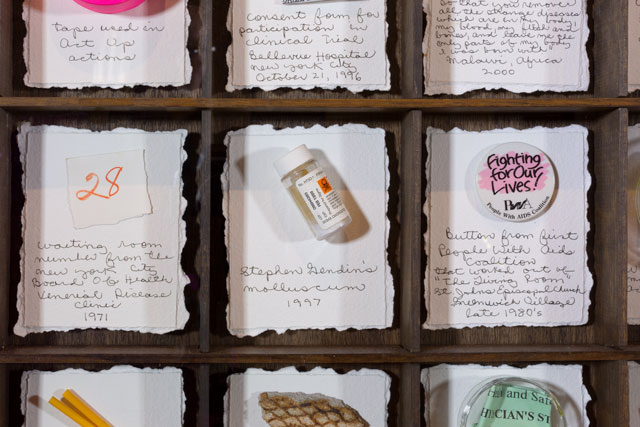 tape used in
Act Up
actions
consent form for
participation in
clinical trial
Bellevue Hospital
new york City
October 21, 1996
So that you remover
all the strange diseases
which are in my body,
my blood, my flesh and
bones, and leave me the
only parts of my body
I was born with
Malawi, Africa
2000
28
waiting room
number from the
new york City
Board Of Health
Venereal Disease
Clinic
1971
Stephen Gendin's
molluscum
1997
Fighting
for Our
Lives!
PWA
People With AIDS Coalition
Button from first
People With Aids
Coalition
that worked out of
"The Living Room"
St. Johns Episcopal Church
Greenwich Village
late 1980's
and Safe
ICIAN'S ST